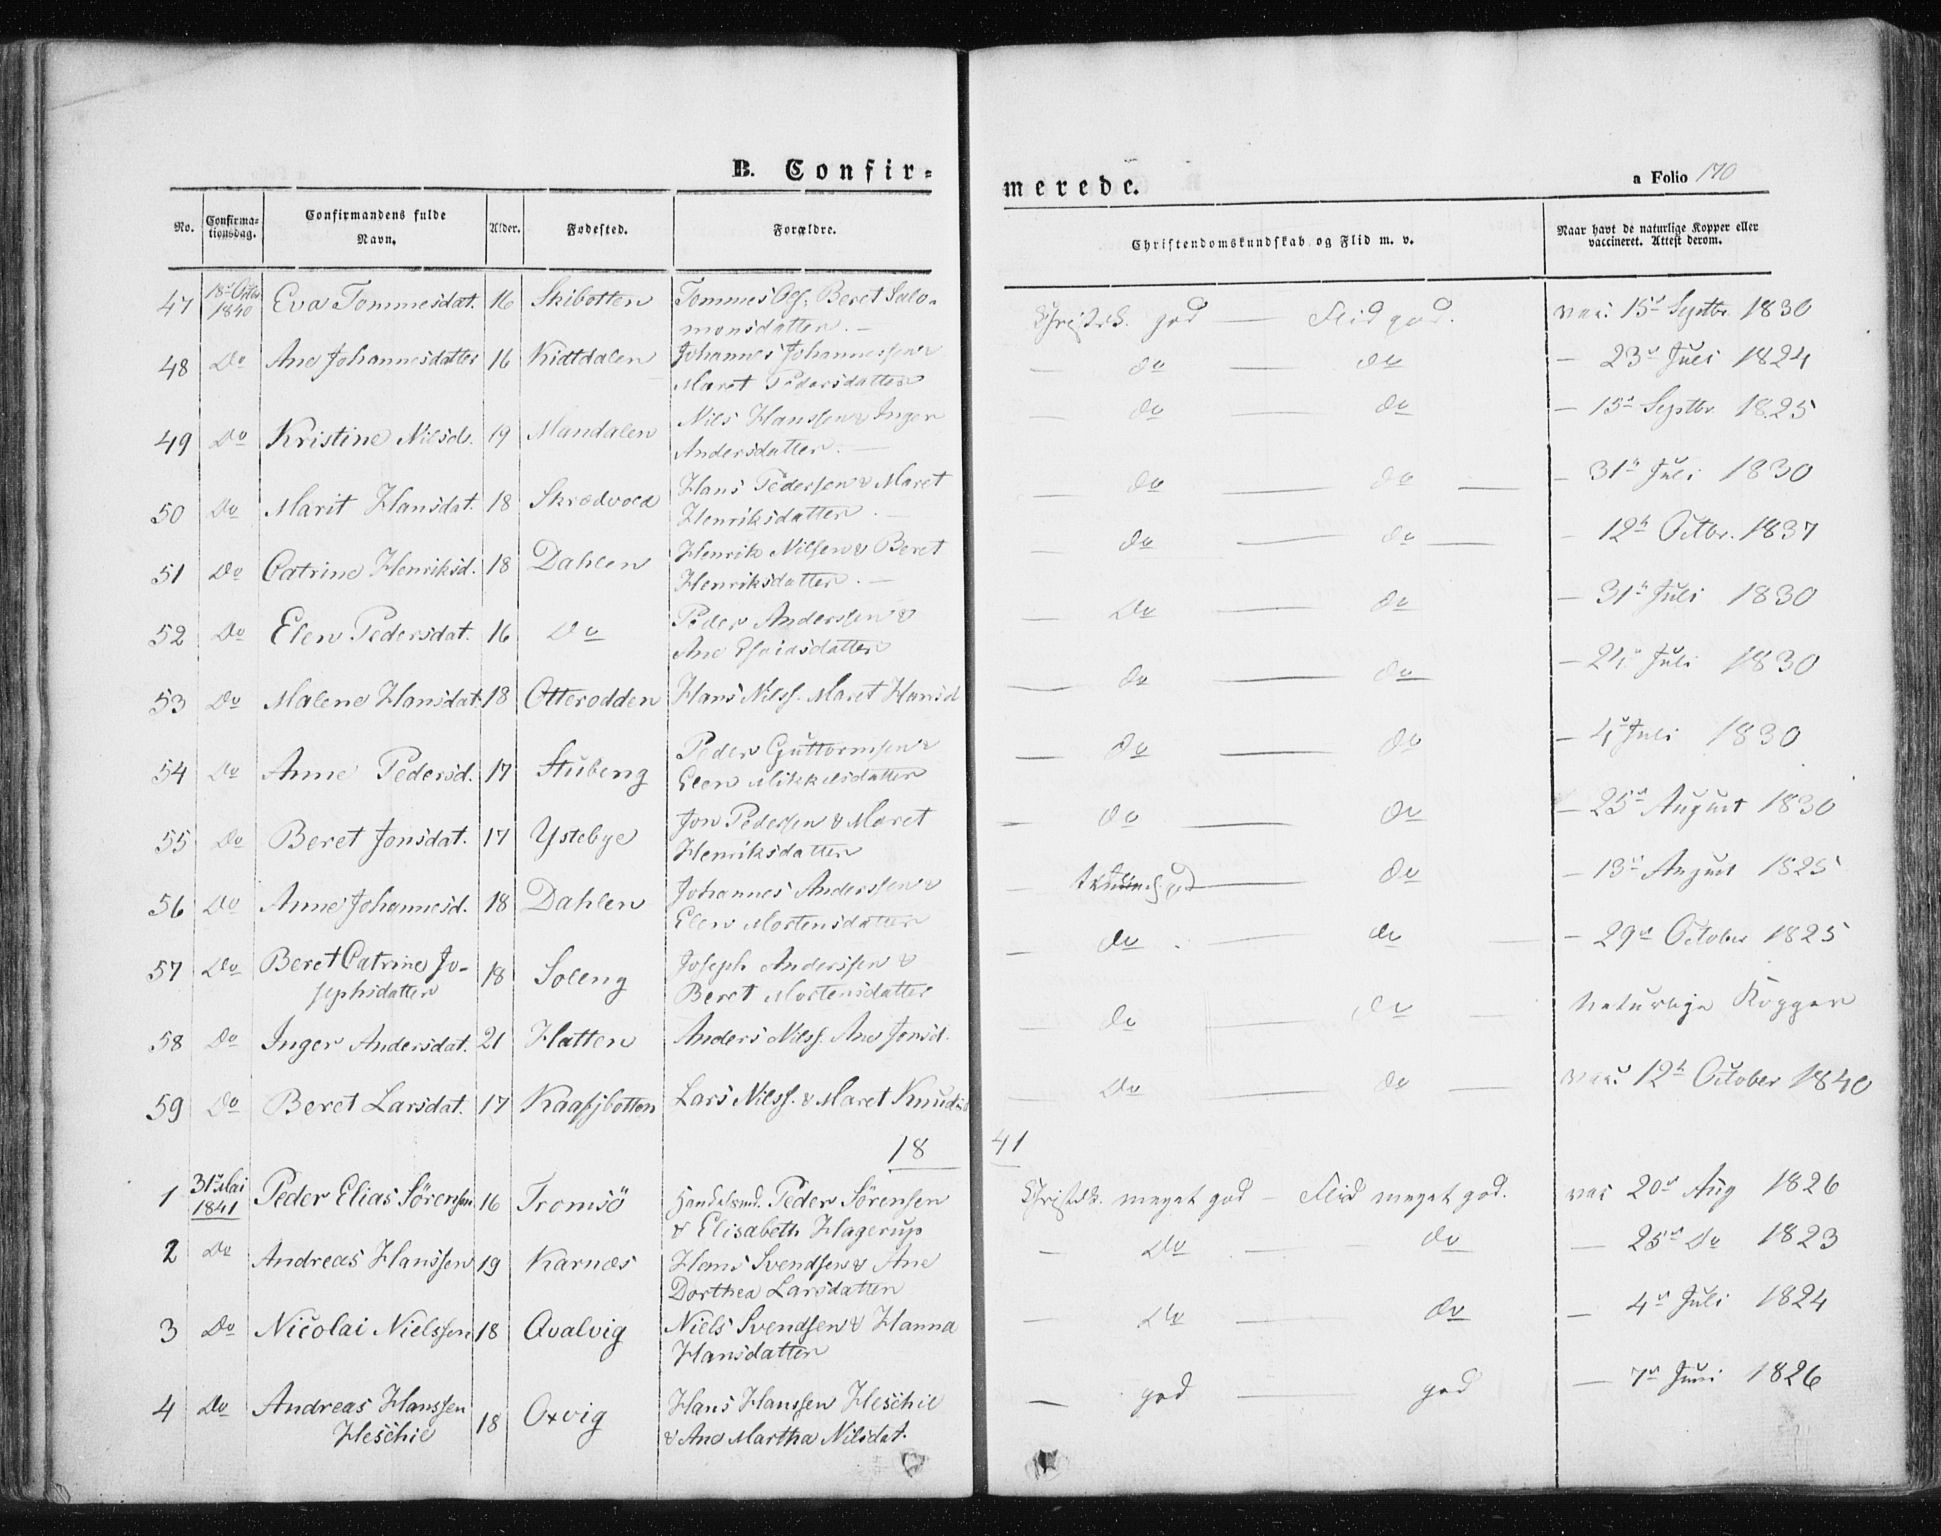 B. Confir-
merede.
a Folio 170
No.
Confirma-
tionsdag.
Confirmandens fulde
Navn.
Alder.
Fødested.
Forældre.
Christendomskundskab og Flid m. v.
Naar havt de naturlige Kopper eller
vaccineret. Attest derom.
47 18de Octbr 1840 Eva Tommesdat. 16 Skibotten Tommes Ols. Beret Salo-
monsdatter. — Christdsk. god — Flid god. vac. 15de Septbr. 1830
48 Do Ane Johannesdatter 16 Kidtdalen Johannes Johannessen &
Maret Pedersdatter — do — do — 23de Juli 1824
49 Do Kristine Nilsd. 19 Mandalen Nils Hanssen & Inger
Andersdatter. — do — do — 15de Septbr. 1825
50 Do Marit Hansdat. 18 Skrædvold Hans Pedersen & Maret
Henriksdatter. — do — do — 31te Juli 1830
51 Do Catrine Henriksd. 18 Dahlen Henrik Nilsen & Beret
Henriksdatter. — do — do — 12te Octbr. 1837
52 Do Elen Pedersdat. 16 Do Peder Anderssen &
Ane Esaiasdatter — Do — do — 31te Juli 1830
53 Do Malene Hansdat. 18 Otterodden Hans Nilss. Maret Hansd — do — do — 24de Juli 1830
54 Do Anne Pedersd. 17 Stubeng Peder Guttormsen &
Elen Mikkelsdatter — do — do — 4de Juli 1830
55 Do Beret Jonsdat. 17 Ystebye Jon Pedersen & Maret
Henriksdatter — do — do — 25de August 1830
56 Do Anne Johannesd. 18 Dahlen Johannes Anderssen &
Elen Mortensdatter — god — do — 13de August 1825
57 Do Beret Catrine Jo-
sephsdatter 18 Soleng Joseph Anderssen &
Beret Mortensdatter — do — do — 29de October 1825
58 Do Inger Andersdat. 21 Hatten Anders Nilss. Ane Jonsd. — do — do — Naturlige Kopper
59 Do Beret Larsdat. 17 Kaafjbotten Lars Nilss. & Maret Knudsd — Do — do — vac. 12te October 1840
18 41
1 31te Mai 1841 Peder Elias Sörensen 16 Tromsö Handelsmd. Peder Sörensen
& Elisabeth Hagerup Christdsk. meget god — Flid meget god. vac 20de Aug 1826
2 Do Andreas Hanssen 19 Karnæs Hans Svendsen & Ane
Dorthea Larsdatter — Do — do — 25de Do 1823
3 Do Nicolai Nielssen 18 Qvalvig Niels Svendsen & Hanna
Hansdatter — Do — do — 4de Juli 1824
4 Do Andreas Hanssen
Heschie 18 Oxvig Hans Hanssen Heschie
& Ane Martha Nilsdat. — god — god — 7de Juni 1826